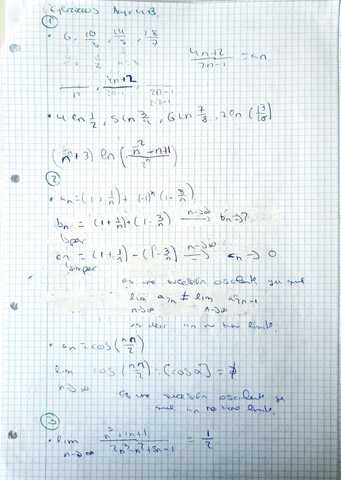 ①
• 6, 10/3, 14/5, 18/7
(4n+2)/(2n-1) = an
n, (4n+2)/(2n-1), 2n-1
• 4 ln 1/2, 5 ln 3/4, 6 ln 7/8,
(n+3) ln (n²-n+1)/2ⁿ
②
• an = (1+1/n) + (-1)ⁿ (1-3/n)
bn = (1+1/n) + (1-3/n) n→∞ bn→2
par
cn = (1+1/n) - (1-3/n) n→∞ cn→0
impar
es una sucesión oscilante ya que
lim a2n ≠ lim a2n-1
n→∞ n→∞
es decir un no tiene límite.
• an = cos(nπ/2)
lim cos(nπ/2) = [cos ∞] = ∄
n→∞
Es una sucesión oscilante ya
que un no tiene límite.
③
• lim = 1/2
n→∞